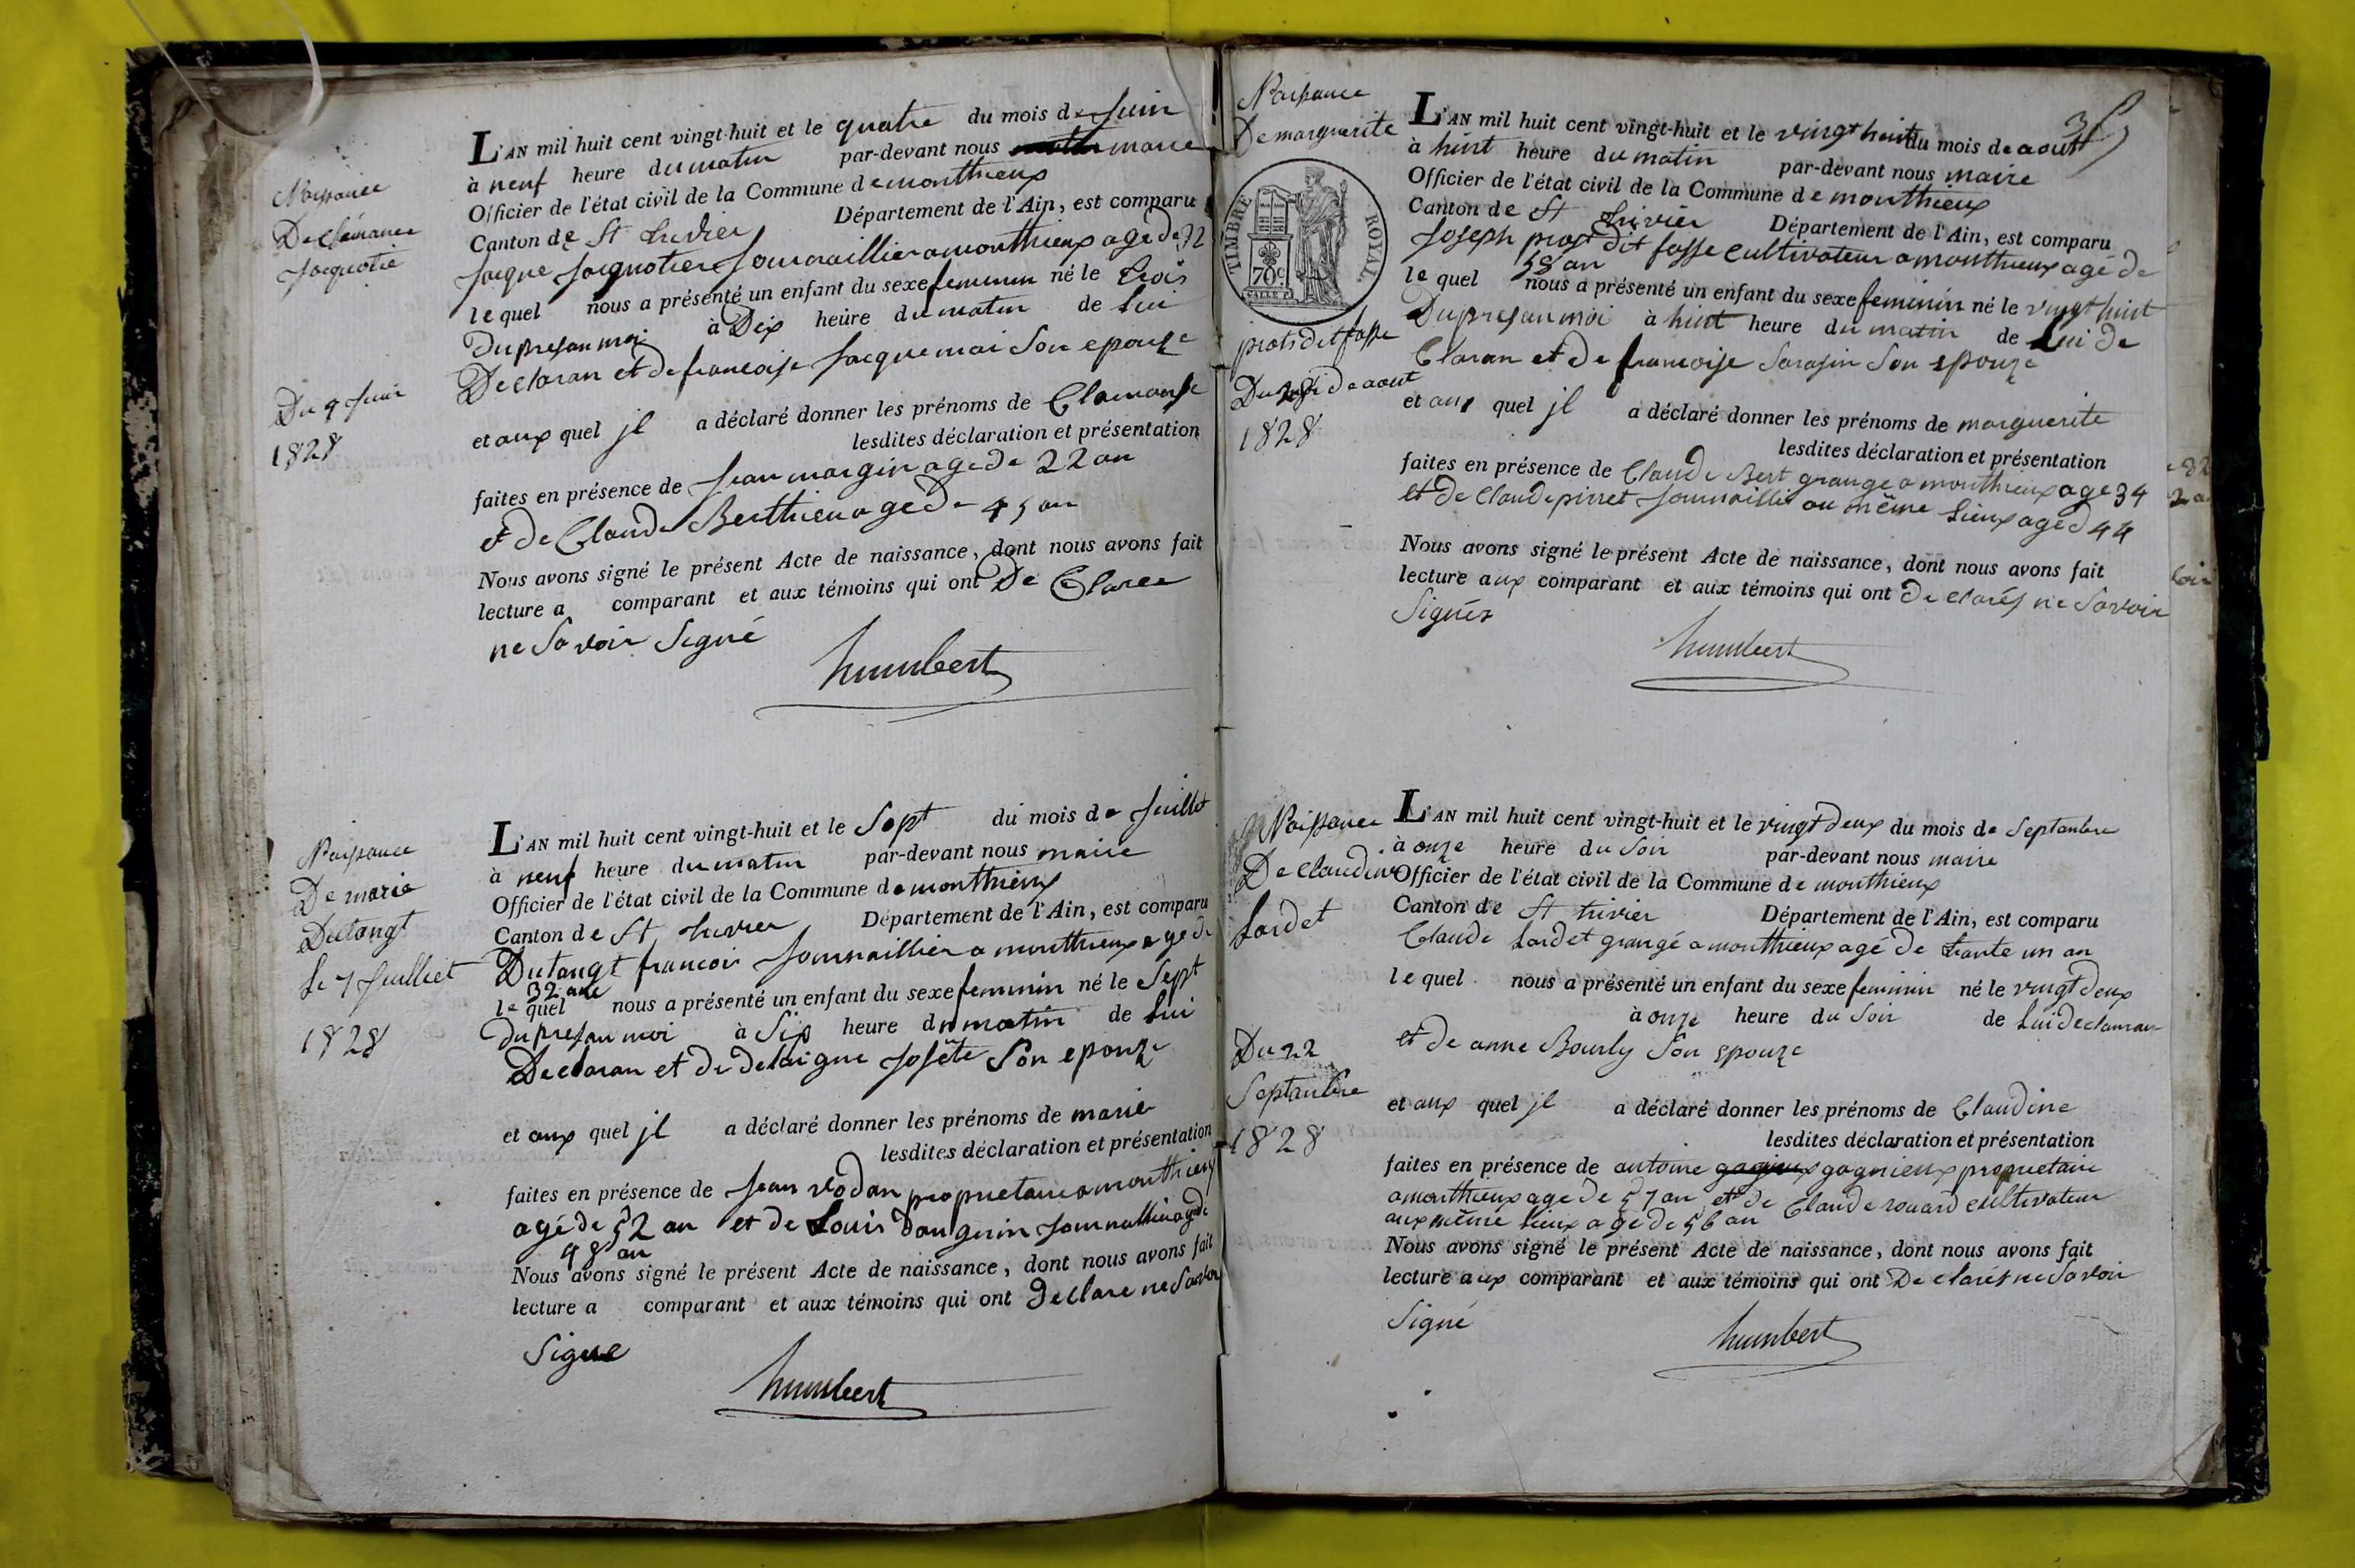 Naissance
De Clémance
Jacquotié
Du 4 Juin
1828
L'AN mil huit cent vingt-huit et le quatre du mois de Juin
à neuf heure du matin par-devant nous maire
Officier de l'état civil de la Commune de monthieux
Canton de St trivier Département de l'Ain, est comparu
Jacque Jacquotier Journaillier a monthieux age de 32
le quel nous a présenté un enfant du sexe feminin né le trois
du presan moi à Dix heure du matin de lui
Declaran et de francoise Jacquemai son epouze
et aux quel jl a déclaré donner les prénoms de Clamanse
lesdites déclaration et présentation
faites en présence de Jean margin age de 22 an
et de Claude Berthieu age de 45 an
Nous avons signé le présent Acte de naissance, dont nous avons fait
lecture a comparant et aux témoins qui ont De Claree
ne Savoir Signé
humbert
Naissance
De marie
Dutangt
Le 7 Juilliet
1828
L'AN mil huit cent vingt-huit et le Sept du mois de Juillet
à neuf heure du matin par-devant nous maire
Officier de l'état civil de la Commune de monthieux
Canton de St trivier Département de l'Ain, est comparu
Dutangt francois Journaillier a monthieux age de
32 ane
le quel nous a présenté un enfant du sexe feminin né le Sept
du presan moi à Six heure du matin de lui
Declaran et de delaigue Josète Son epouze
et aux quel jl a déclaré donner les prénoms de marie
lesdites déclaration et présentation
faites en présence de Jean vodan proprietaire a monthieux
agé de 52 an et de Louis Danguin Journallier age de
48 an
Nous avons signé le présent Acte de naissance, dont nous avons fait
lecture a comparant et aux témoins qui ont Declare ne Savoir
Signe
humbert
35
Naissance
De marguerite
TIMBRE ROYAL
70c.
prots dit fosse
Du 28 de aout
1828
L'AN mil huit cent vingt-huit et le vingt huit du mois de aout
à huit heure du matin par-devant nous maire
Officier de l'état civil de la Commune de monthieux
Canton de St trivier Département de l'Ain, est comparu
Joseph prost dit fosse cultivateur a monthieux agé de
58 an
le quel nous a présenté un enfant du sexe feminin né le vingt huit
Du presan moi à huit heure du matin de Lui De
Claran et de francoise Sarasin Son epouze
et aux quel jl a déclaré donner les prénoms de marguerite
lesdites déclaration et présentation
faites en présence de Claude Bert grange a monthieux age 34
et de Claude pinet Journaillié au même lieux age d 44
Nous avons signé le présent Acte de naissance, dont nous avons fait
lecture aux comparant et aux témoins qui ont De clarés ne Savoir
Signés
humbert
Naissance
De Claudine
Lardet
Du 22
Septanbre
1828
L'AN mil huit cent vingt-huit et le vingt deux du mois de Septanbre
à onze heure du Soir par-devant nous maire
Officier de l'état civil de la Commune de monthieux
Canton de St trivier Département de l'Ain, est comparu
Claude Lardet grangé a monthieux agé de trante un an
le quel nous a présenté un enfant du sexe feminin né le vingt deux
à onze heure du Soir de Lui declaran
et de anne Bourly Son epouze
et aux quel jl a déclaré donner les prénoms de Claudine
lesdites déclaration et présentation
faites en présence de antoine gagnieux proprietaire
a monthieux age de 57 an et de Claude rouard cultivateur
aux même lieux agé de 56 an
Nous avons signé le présent Acte de naissance, dont nous avons fait
lecture aux comparant et aux témoins qui ont De clarés ne Savoir
Signé
humbert